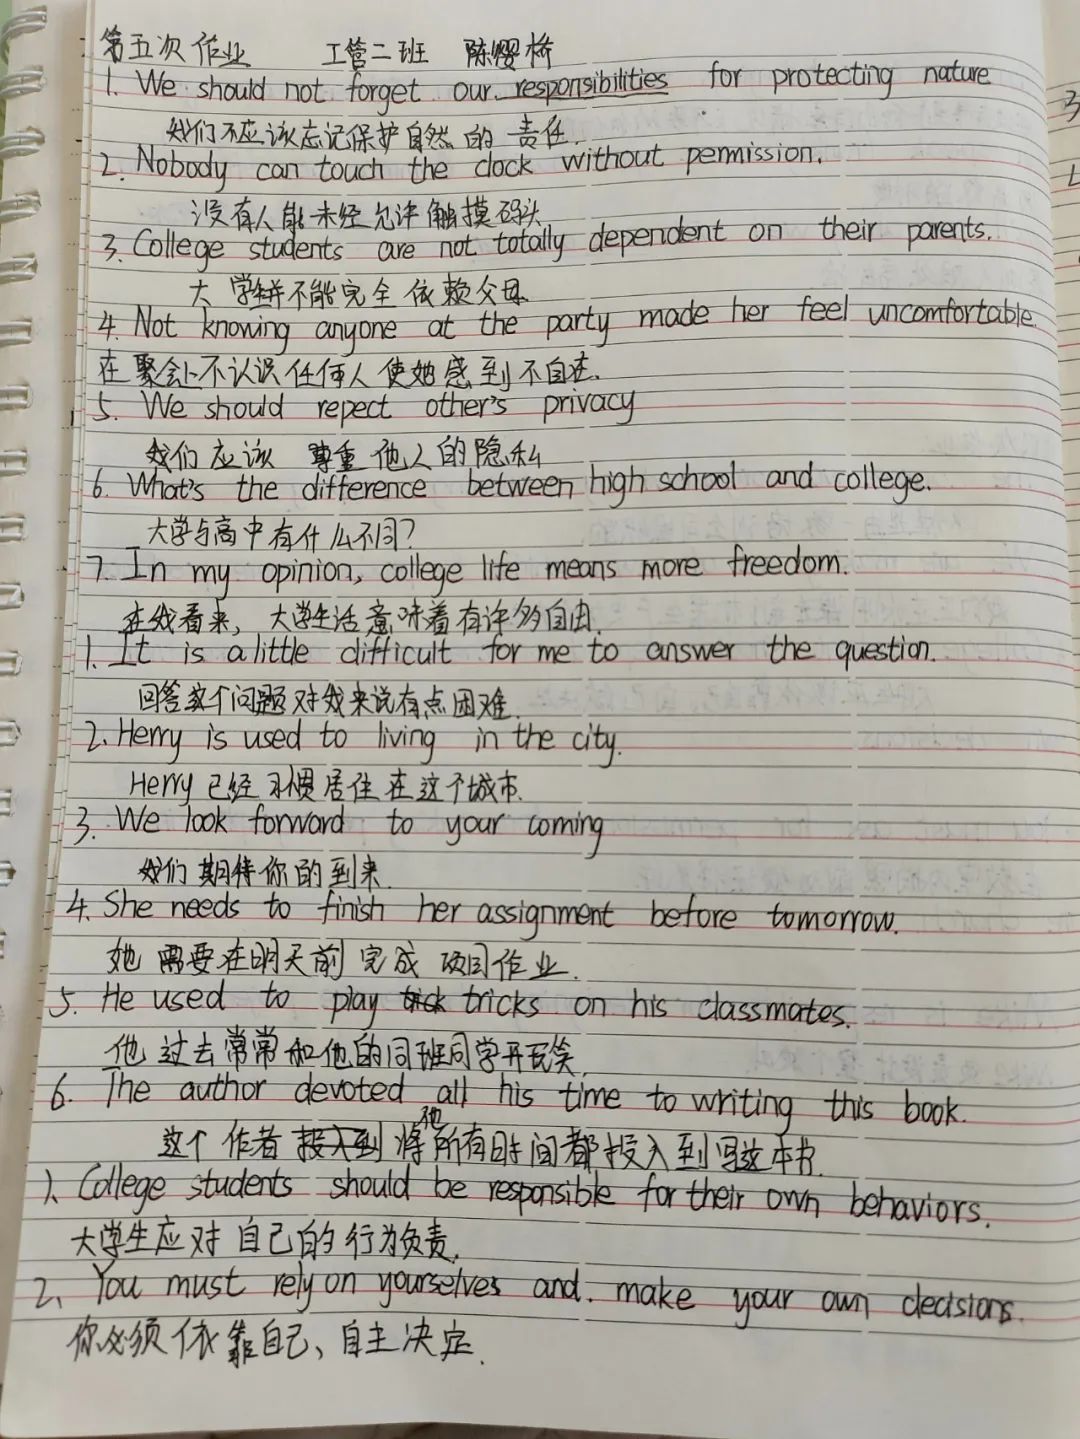 第五次作业 工管二班 陈婴桥
1. We should not forget our responsibilities for protecting nature
我们不应该忘记保护自然的责任.
2. Nobody can touch the clock without permission.
没有人能未经允许触摸码头
3. College students are not totally dependent on their parents.
大学生并不能完全依赖父母
4. Not knowing anyone at the party made her feel uncomfortable.
在聚会上不认识任何人使她感到不自在.
5. We should repect other's privacy
我们应该 尊重他人的隐私
6. What's the difference between high school and college.
大学与高中有什么不同?
7. In my opinion, college life means more freedom.
在我看来, 大学生活意味着有许多自由.
1. It is a little difficult for me to answer the question.
回答这个问题对我来说有点困难.
2. Herry is used to living in the city.
Herry 已经习惯居住在这个城市.
3. We look forward to your coming
我们期待你的到来.
4. She needs to finish her assignment before tomorrow.
她需要在明天前完成项目作业.
5. He used to play tricks on his classmates.
他过去常常和他的同班同学开玩笑.
6. The author devoted all his time to writing this book.
这个作者将他所有时间都投入到写这本书.
1. College students should be responsible for their own behaviors.
大学生应对自己的行为负责.
2. You must rely on yourselves and. make your own decisions.
你必须依靠自己、自主决定.